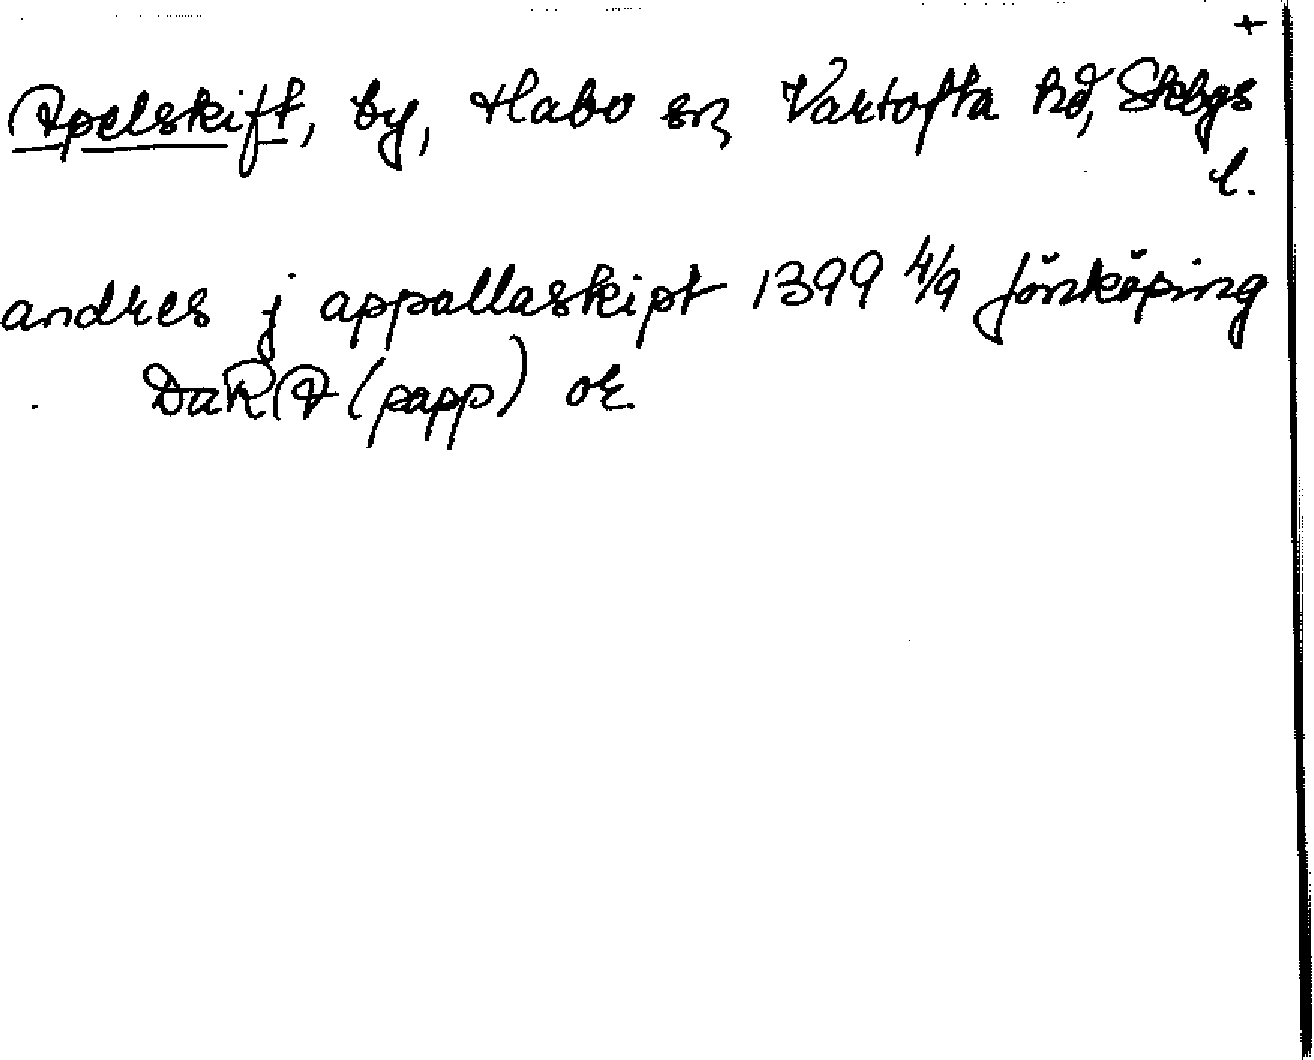 +
Apelskift, by, Habo sn, Vartofta hd, Skbgs
l.
andres j appallaskipt 1399 4/9 Jönköping
DaRA (papp) or.